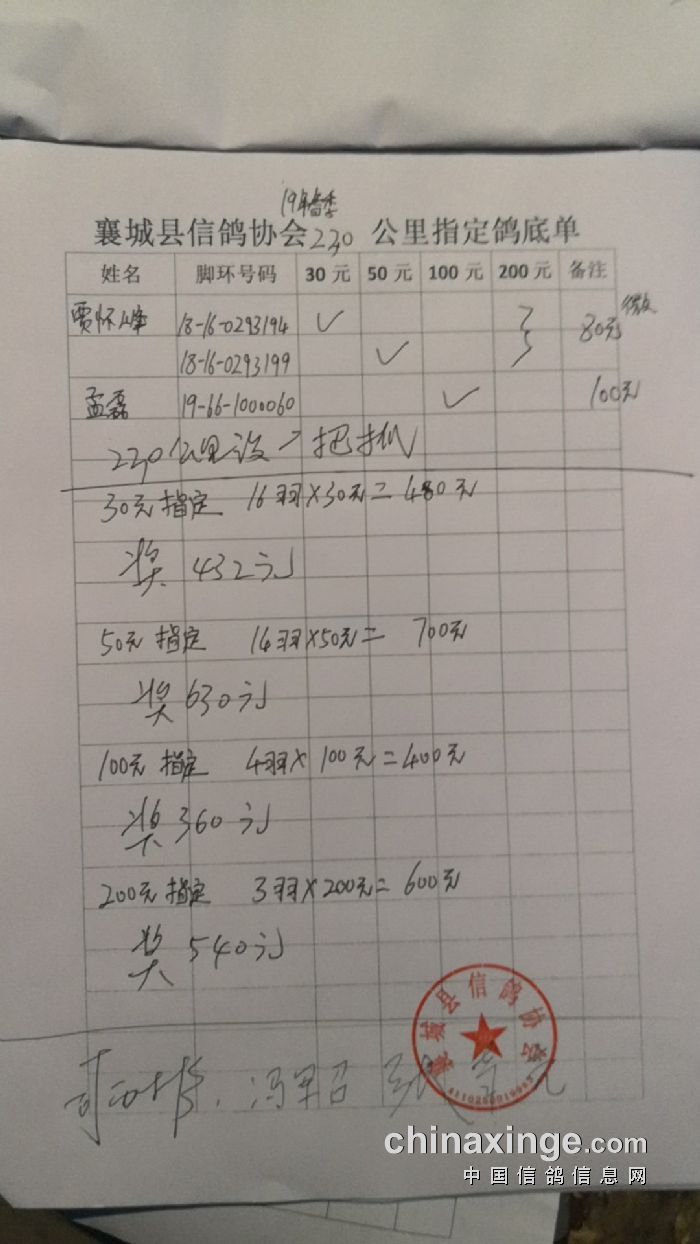 19年春季
襄城县信鸽协会230 公里指定鸽底单
姓名 脚环号码 30 元 50 元 100 元 200 元 备注
贾怀峰 18-16-0293194 ✓ 80元
18-16-0293199 ✓
孟磊 19-66-1000060 ✓ 100元
230公里设
30元指定 16羽×30元=480元
奖 432元
50元指定 14羽×50元= 700元
奖 630元
100元指定 4羽×100元=400元
奖 360元
200元指定 3羽×200元=600元
奖 540元
襄城县信鸽协会
chinaxinge.com
中国信鸽信息网